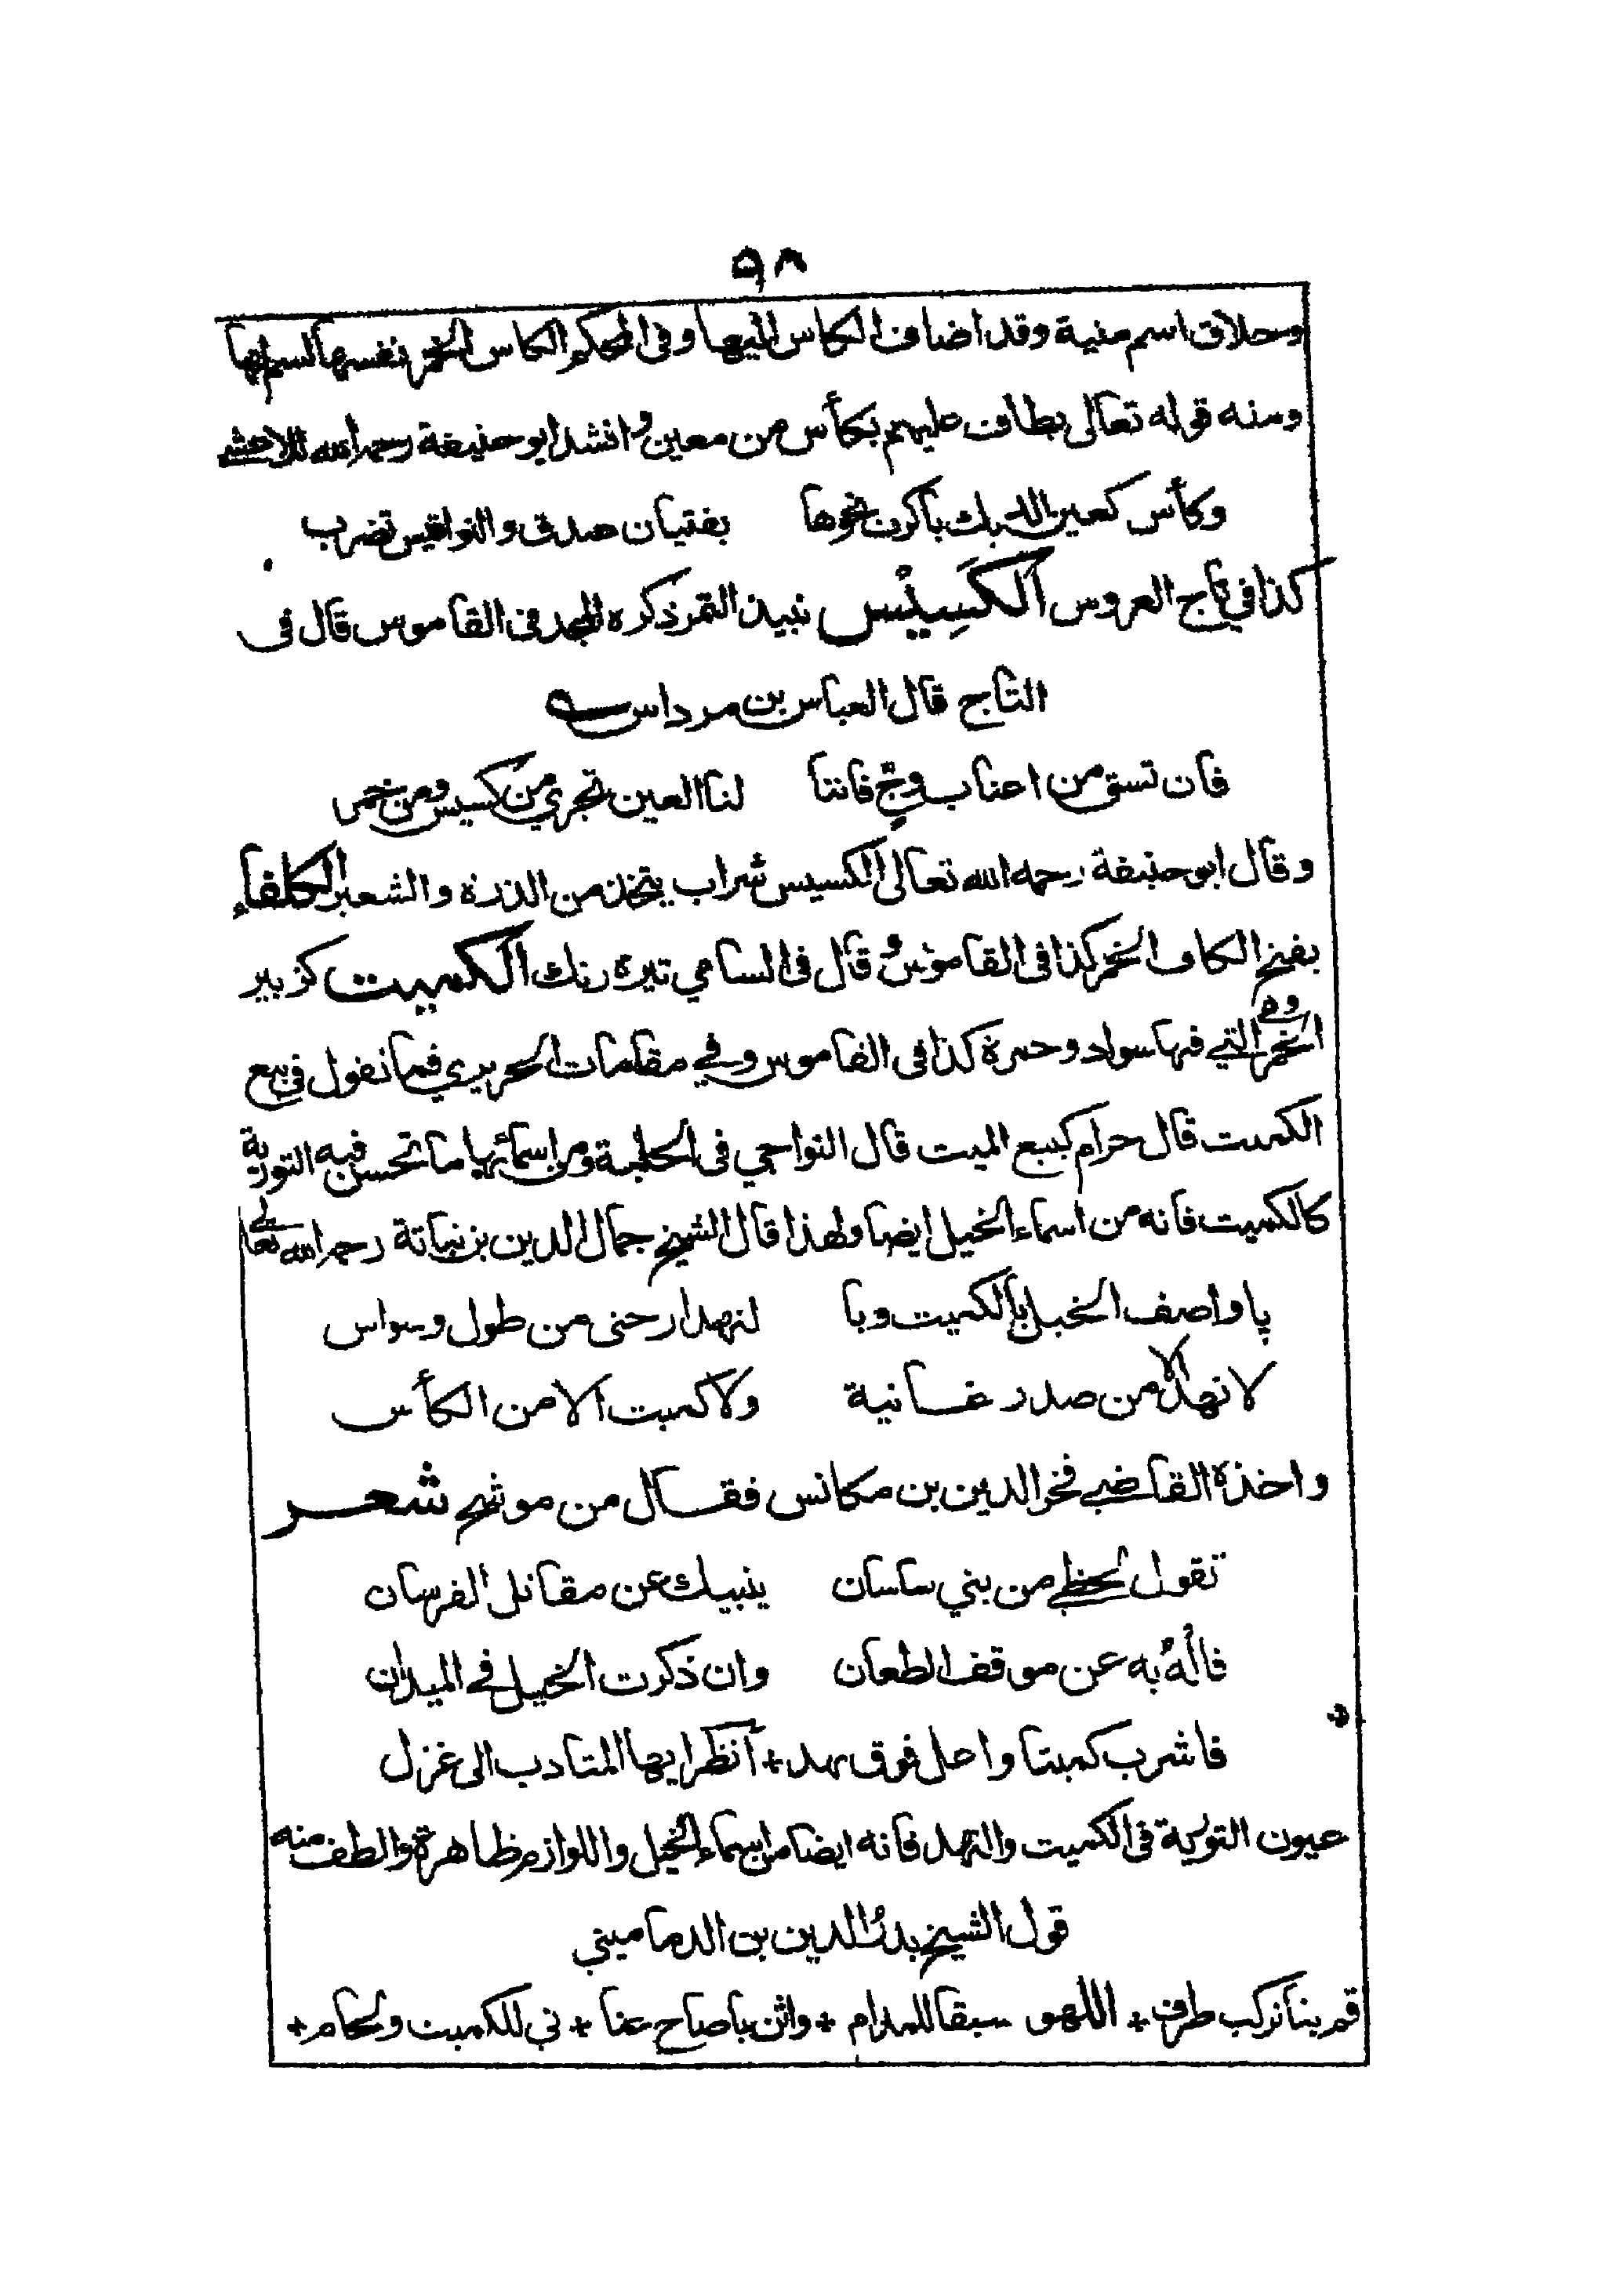 ٩٨
وحلاق اسم منية وقد اضاف الكاس اليها وفي المحكم الكاس الخمر نفسها اسم لها
ومنه قوله تعالى يطاف عليهم بكأس من معين وانشد ابو حنيفة رحمه الله للاعشى
وكأس كعين الديك باكرت نحوها بفتيان صدق والنواقيس تضرب
كذا في تاج العروس الكَسِيْس نبيذ التمر ذكره المجد في القاموس قال في
التاج قال العباس بن مرداس
فان تسق من اعناب وجّ فاننا لنا العين تجري من كسيس ومن خمر
وقال ابو حنيفة رحمه الله تعالى الكسيس شراب يتخذ من الذرة والشعير الكلفاء
بفتح الكاف الخمر كذا في القاموس و قال في السامي تيره رنك الكميت كزبير
الخمر التي فيها سواد وحمرة كذا في القاموس وفي مقامات الحريري فما نقول في بيع
الكميت قال حرام كبيع الميت قال النواجي في الحلبة ومن اسمائها ما تحسن فيه التورية
كالكميت فانه من اسماء الخيل ايضا ولهذا قال الشيخ جمال الدين بن نباتة رحمه الله تعالى
يا واصف الخيل بالكميت وبا لنهد ارحني من طول وسواس
لا نهد الا من صدر غانية ولا كميت الا من الكأس
واخذه القاضي فخر الدين بن مكانس فقال من موشح شعر
تقول لحظي من بني ساسان ينبيك عن مقاتل الفرسان
فالْهُ به عن موقف الطعان وان ذكرت الخيل في الميدان
فاشرب كميتا واعل فوق نهد + انظر ايها المتادب الى غزل
عيون التورية في الكميت والنهد فانه ايضا من اسماء الخيل واللوازم ظاهرة والطف منه
قول الشيخ بدر الدين بن الدماميني
قم بنا نركب طرف + اللهو سبقا للمدام + واثن يا صاح عنا + ني للكميت ولجام +